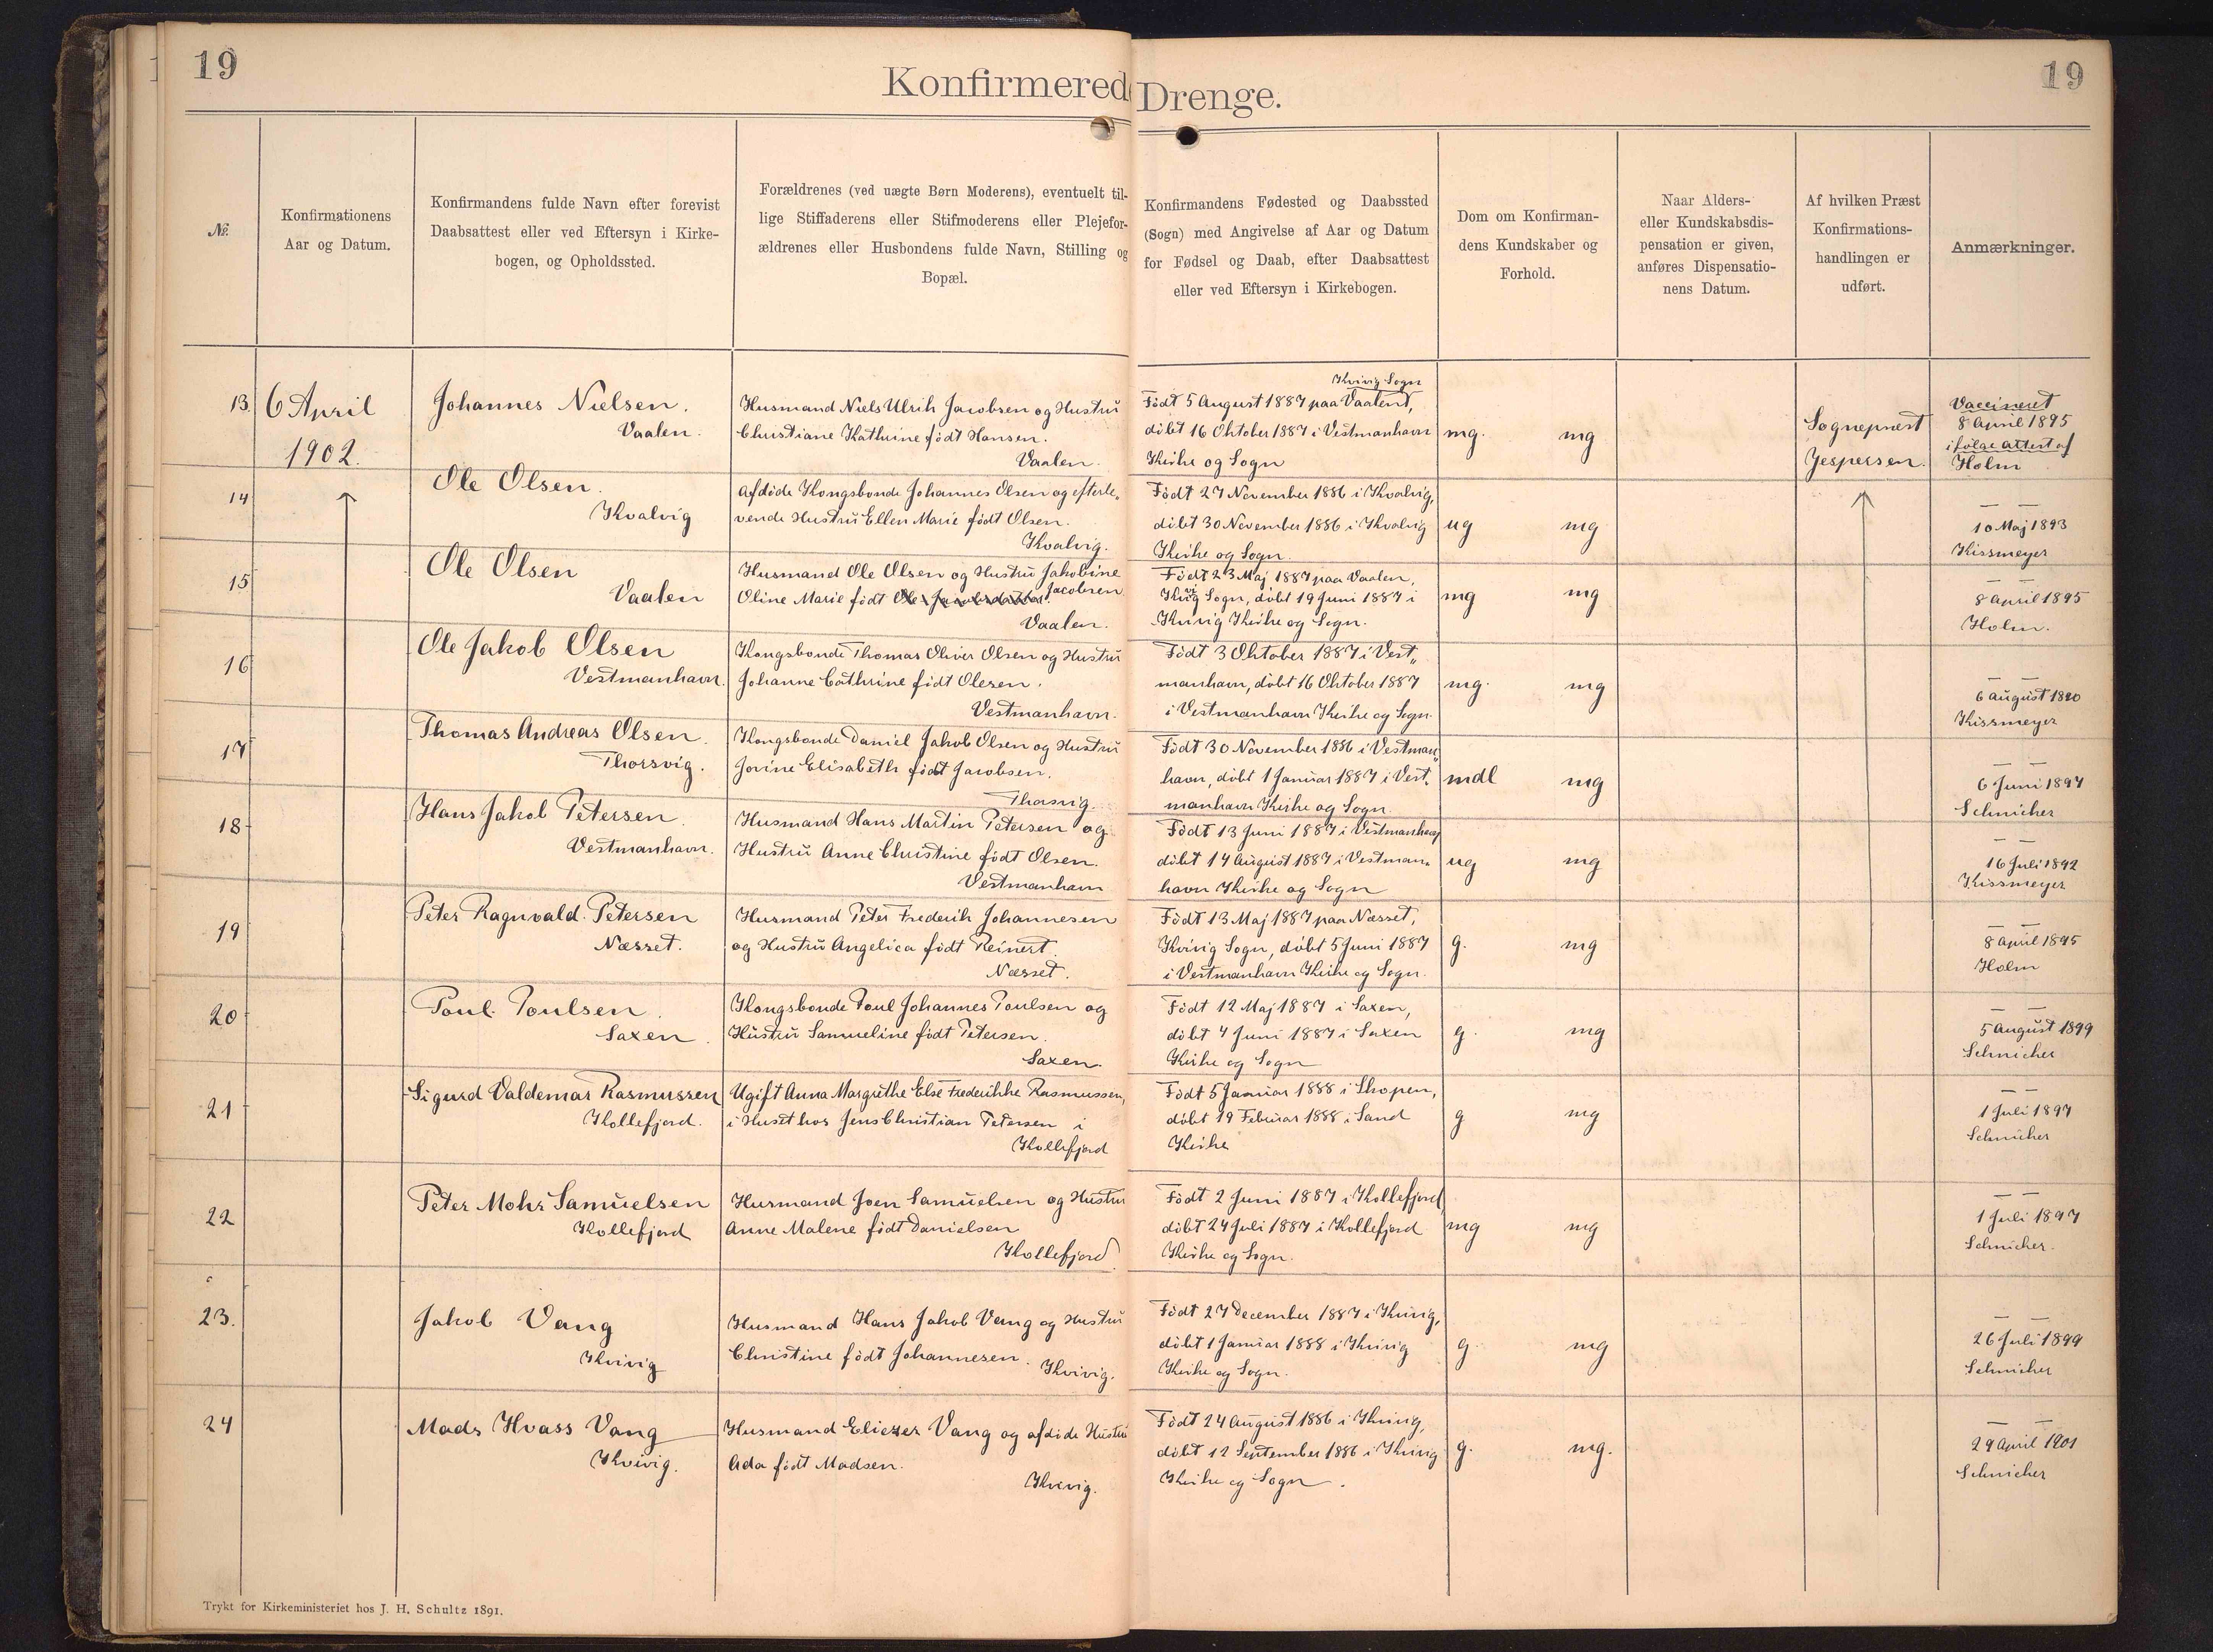 19
Konfirmered Drenge.
19
No.
Konfirmationens
Aar og Datum.
Konfirmandens fulde Navn efter forevist
Daabsattest eller ved Eftersyn i Kirke-
bogen, og Opholdssted.
Forældrenes (ved uægte Børn Moderens), eventuelt til-
lige Stiffaderens eller Stifmoderens eller Plejefor-
ældrenes eller Husbondens fulde Navn, Stilling og
Bopæl.
Konfirmandens Fødested og Daabssted
(Sogn) med Angivelse af Aar og Datum
for Fødsel og Daab, efter Daabsattest
eller ved Eftersyn i Kirkebogen.
Dom om Konfirman-
dens Kundskaber og
Forhold.
Naar Alders-
eller Kundskabsdis-
pensation er given,
anføres Dispensatio-
nens Datum.
Af hvilken Præst
Konfirmations-
handlingen er
udført.
Anmærkninger.
13.
6 April
1902.
Johannes Nielsen.
Vaalen.
Husmand Niels Ulrik Jacobsen og Hustru
Christiane Kathrine født Hansen.
Vaalen.
Kvivig Sogn
Født 5 August 1887 paa Vaalen,
døbt 16 Oktober 1887 i Vestmanhavn
Kirke og Sogn
mg. mg
Sognepræst
Jespersen.
Vaccineret
8 April 1895
ifølge attest af
Holm
14
Ole Olsen.
Kvalvig
Afdøde Kongsbonde Johannes Olsen og efterle-
vende Hustru Ellen Marie født Olsen.
Kvalvig.
Født 27 November 1886 i Kvalvig,
døbt 30 November 1886 i Kvalvig
Kirke og Sogn.
ug mg
10 Maj 1893
Kissmeyer
15
Ole Olsen
Vaalen
Husmand Ole Olsen og Hustru Jakobine
Oline Marie født Jacobsen
Vaalen.
Født 23 Maj 1887 paa Vaalen,
Kvivig Sogn, døbt 19 Juni 1887 i
Kvivig Kirke og Sogn.
mg mg
8 April 1895
Holm.
16
Ole Jakob Olsen
Vestmanhavn.
Kongsbonde Thomas Oliver Olsen og Hustru
Johanne Cathrine født Olesen.
Vestmanhavn.
Født 3 Oktober 1887 i Vest„
manhavn, døbt 16 Oktober 1887
i Vestmanhavn Kirke og Sogn.
mg. mg
6 August 1890
Kissmeyer
17
Thomas Andreas Olsen.
Thorsvig.
Kongsbonde Daniel Jakob Olsen og Hustru
Jovine Elisabeth født Jacobsen.
Thorsvig.
Født 30 November 1886 i Vestman„
havn, døbt 1 Januar 1887 i Vest„
manhavn Kirke og Sogn.
mdl mg
6 Juni 1897
Schnicher
18
Hans Jakob Petersen.
Vestmanhavn.
Husmand Hans Martin Petersen og
Hustru Anne Christine født Olsen.
Vestmanhavn
Født 13 Juni 1887 i Vestmanhavn
døbt 14 August 1887 i Vestman„
havn Kirke og Sogn
ug mg
16 Juli 1892
Kissmeyer
19
Peter Ragnvald Petersen
Næsset.
Husmand Peter Frederik Johannesen
og Hustru Angelica født Reinert.
Næsset.
Født 13 Maj 1887 paa Næsset,
Kvivig Sogn, døbt 5 Juni 1887
i Vestmanhavn Kirke og Sogn.
g. mg
8 April 1895
Holm
20
Poul Poulsen.
Saxen.
Kongsbonde Poul Johannes Poulsen og
Hustru Samueline født Petersen.
Saxen.
Født 12 Maj 1887 i Saxen,
døbt 4 Juni 1887 i Saxen
Kirke og Sogn
g. mg
5 August 1899
Schnicher
21
Sigurd Valdemar Rasmussen
Kollefjord.
Ugift Anna Margrethe Else Frederikke Rasmussen,
i Huset hos Jens Christian Petersen i
Kollefjord
Født 5 Januar 1888 i Skopen,
døbt 19 Februar 1888 i Sand
Kirke
g mg
1 Juli 1897
Schnicher
22
Peter Mohr Samuelsen
Kollefjord
Husmand Joen Samuelsen og Hustru
Anne Malene født Danielsen
Kollefjord.
Født 2 Juni 1887 i Kollefjord
døbt 24 Juli 1887 i Kollefjord
Kirke og Sogn.
mg mg
1 Juli 1897
Schnicher.
23.
Jakob Vang
Kvivig
Husmand Hans Jakob Vang og Hustru
Christine født Johannesen.
Kvivig.
Født 27 December 1887 i Kvivig,
døbt 1 Januar 1888 i Kvivig
Kirke og Sogn.
g. mg
26 Juli 1899
Schnicher
24
Mads Hvass Vang
Kvivig.
Husmand Eliezer Vang og afdøde Hustru
Ada født Madsen.
Kvivig.
Født 24 August 1886 i Kvivig,
døbt 12 September 1886 i Kvivig
Kirke og Sogn.
g. mg.
29 April 1901
Schnicher
Trykt for Kirkeministeriet hos J. H. Schultz 1891.